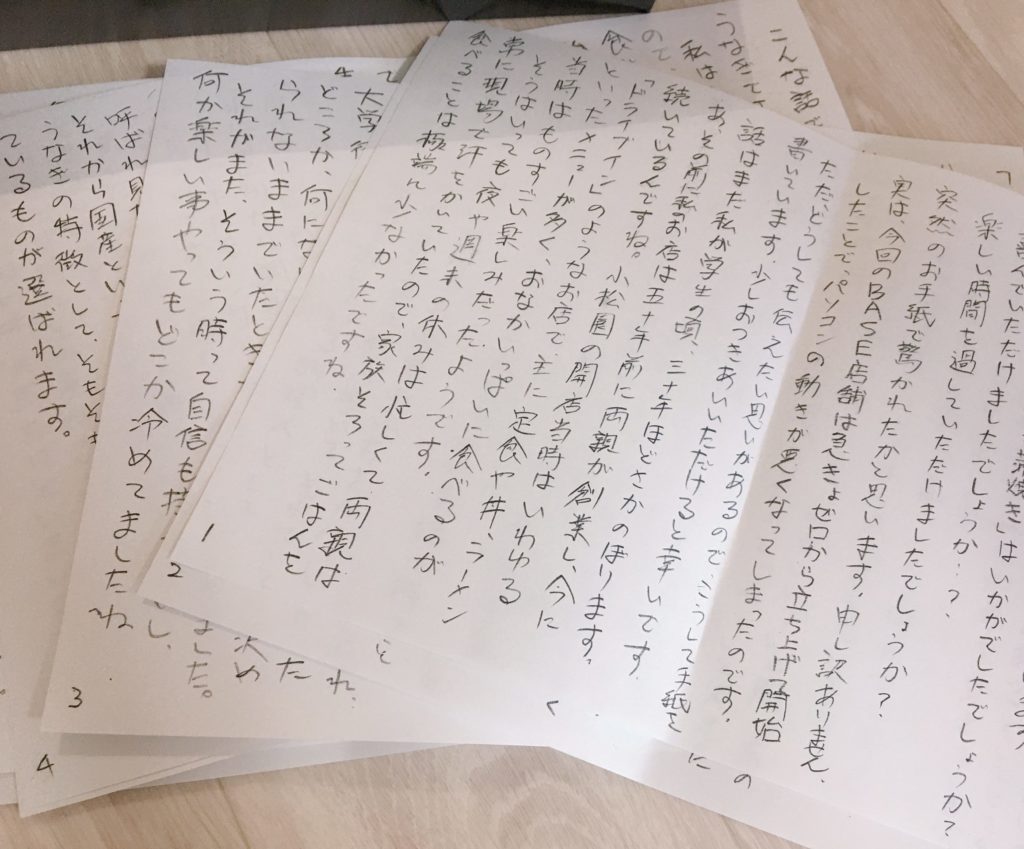 蒲焼きはいかがでしたでしょうか?
喜んでいただけましたでしょうか…?
楽しい時間を過していただけましたでしょうか?
突然のお手紙で驚かれたかと思います。申し訳ありません。
実は今回のBASE店舗は急きょゼロから立ち上げ開始
したことで、パソコンの動きが悪くなってしまったのです。
ただどうしても伝えたい思いがあるので、こうして手紙を
書いています。少しおつきあいいただけると幸いです。
話はまだ私が学生の頃、三十年ほどさかのぼります。
あ、その前に私のお店は五十年前に両親が創業し、今に
続いているんですね。小松園の開店当時はいわゆる
「ドライブイン」のようなお店で、主に定食や丼、ラーメン
といったメニューが多く、おなかいっぱいに食べるのが
当時はものすごい楽しみだったようです。
そうはいっても夜や週末の休みは忙しくて、両親は
常に現場で汗をかいていたので、家族そろってごはんを
食べることは極端に少なかったですね。
1
こんな話
うなぎ
私は
ので
2
大学
どころか、何にな
いられないままでいたとき
それがまた、そういう時って自信も持
何か楽しい事やってもどこか冷めてましたね
3
呼ばれ
それから国産とい
うなぎの特徴として、そもそ
ているものが選ばれます。
4